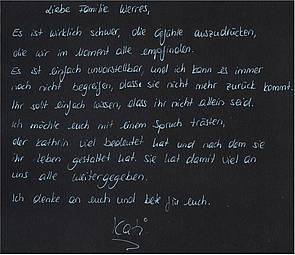 Liebe Familie Werres,
Es ist wirklich schwer, die Gefühle auszudrücken,
die wir im Moment alle empfinden.
Es ist einfach unvorstellbar, und ich kann es immer
noch nicht begreifen, dass sie nicht mehr zurück kommt.
Ihr sollt einfach wissen, dass ihr nicht allein seid.
Ich möchte euch mit einem Spruch trösten,
der Kathrin viel bedeutet hat und nach dem sie
ihr Leben gestaltet hat. Sie hat damit viel an
uns alle weitergegeben.
Ich denke an euch und bete für euch.
Kati